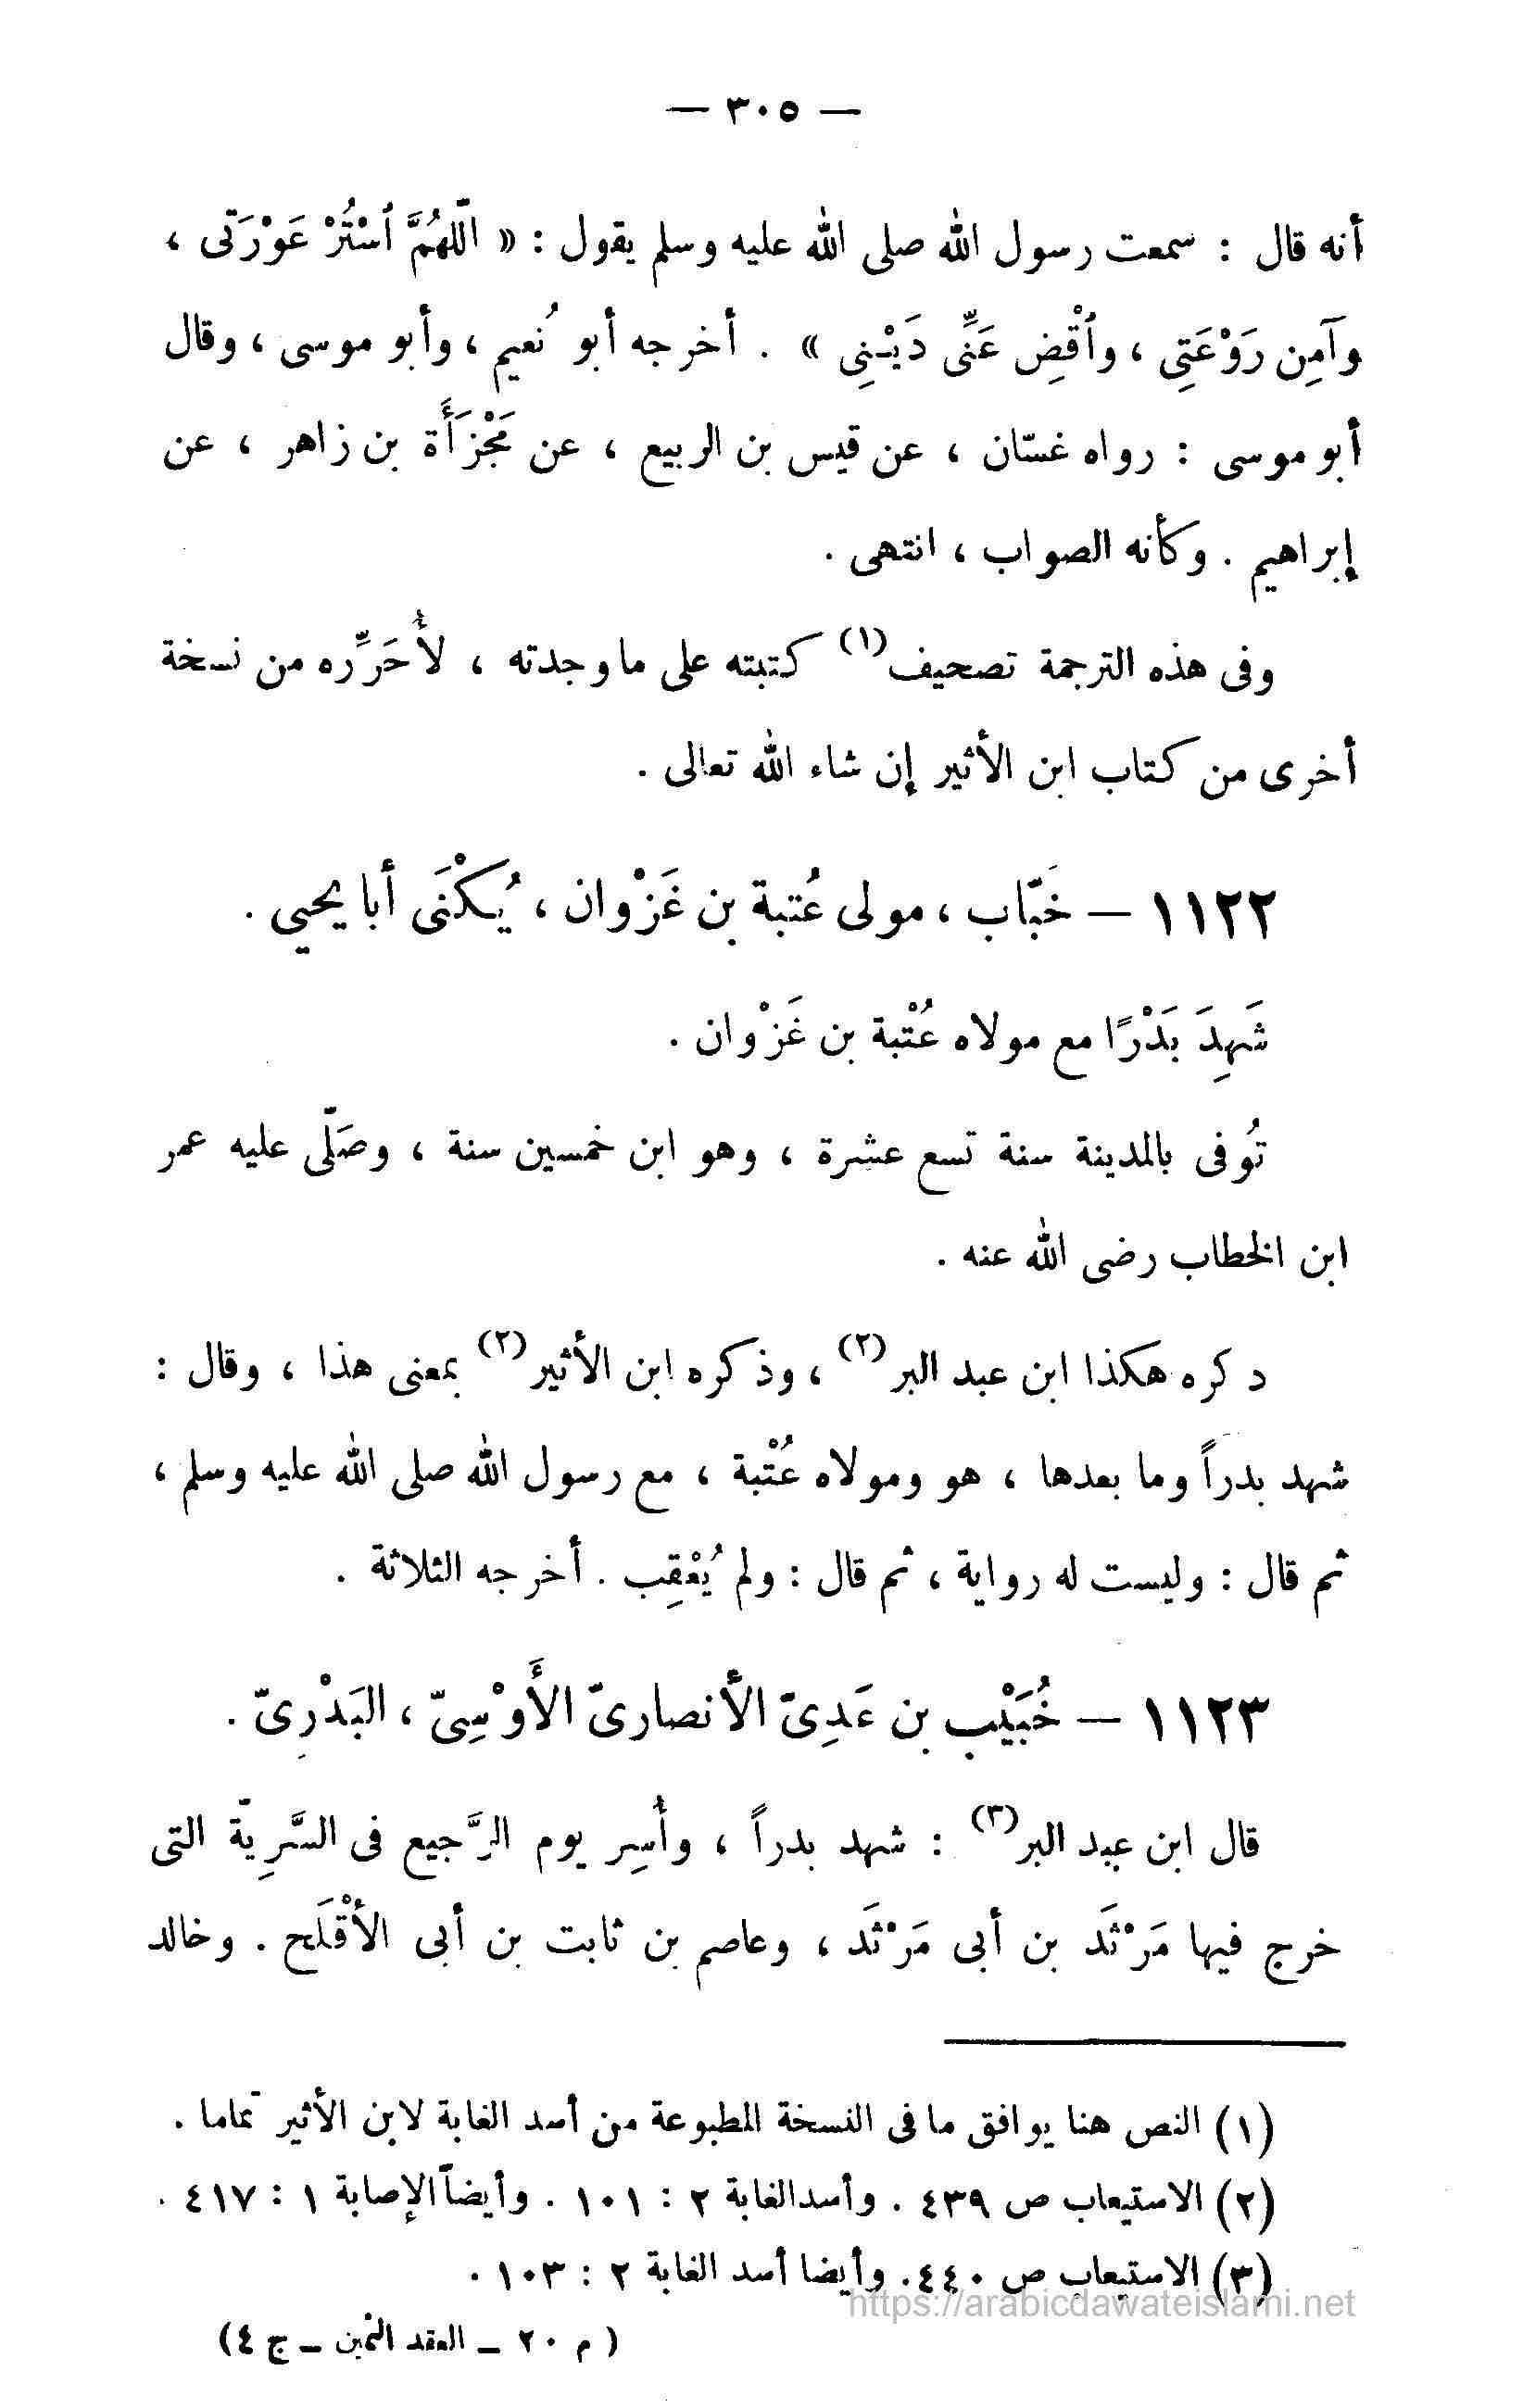 — ٣٠٥ —
أنه قال : سمعت رسول الله صلى الله عليه وسلم يقول : « اللّهُمَّ ٱسْتُرْ عَوْرَتى ،
وآمِن رَوْعَتِى ، وٱقْضِ عَنِّى دَيْنِى » . أخرجه أبو نُعيم ، وأبو موسى ، وقال
أبو موسى : رواه غسّان ، عن قيس بن الربيع ، عن مَجْزَأَة بن زاهر ، عن
إبراهيم . وكأنه الصواب ، انتهى .
وفى هذه الترجمة تصحيف(١) كتبته على ما وجدته ، لأُحَرِّره من نسخة
أخرى من كتاب ابن الأثير إن شاء الله تعالى .
١١٢٢ — خَبّاب ، مولى عُتبة بن غَزْوان ، يُكْنَى أبا يحيى .
شَهِدَ بَدْرًا مع مولاه عُتْبة بن غَزْوان .
تُوفى بالمدينة سنة تسع عشرة ، وهو ابن خمسين سنة ، وصَلّى عليه عمر
ابن الخطاب رضى الله عنه .
دكره هكذا ابن عبد البر(٢) ، وذكره ابن الأثير(٢) بمعنى هذا ، وقال :
شهد بدراً وما بعدها ، هو ومولاه عُتْبة ، مع رسول الله صلى الله عليه وسلم ،
ثم قال : وليست له رواية ، ثم قال : ولم يُعْقِب . أخرجه الثلاثة .
١١٢٣ — خُبَيْب بن عَدِىّ الأنصارىّ الأَوْسِىّ ، البَدْرِىّ .
قال ابن عبد البر(٣) : شهد بدراً ، وأُسِر يوم الرَّجيع فى السَّرِيّة التى
خرج فيها مَرْثَد بن أبى مَرْثَد ، وعاصم بن ثابت بن أبى الأقْلَح . وخالد
(١) النص هنا يوافق ما فى النسخة المطبوعة من أسد الغابة لابن الأثير تماما .
(٢) الاستيعاب ص ٤٣٩ . وأسد الغابة ٢ : ١٠١ . وأيضاً الإصابة ١ : ٤١٧ .
(٣) الاستيعاب ص ٤٤٠ . وأيضا أسد الغابة ٢ : ١٠٣ .
https://arabicdawateislami.net
( م ٢٠ – العقد الثمين – ج ٤)